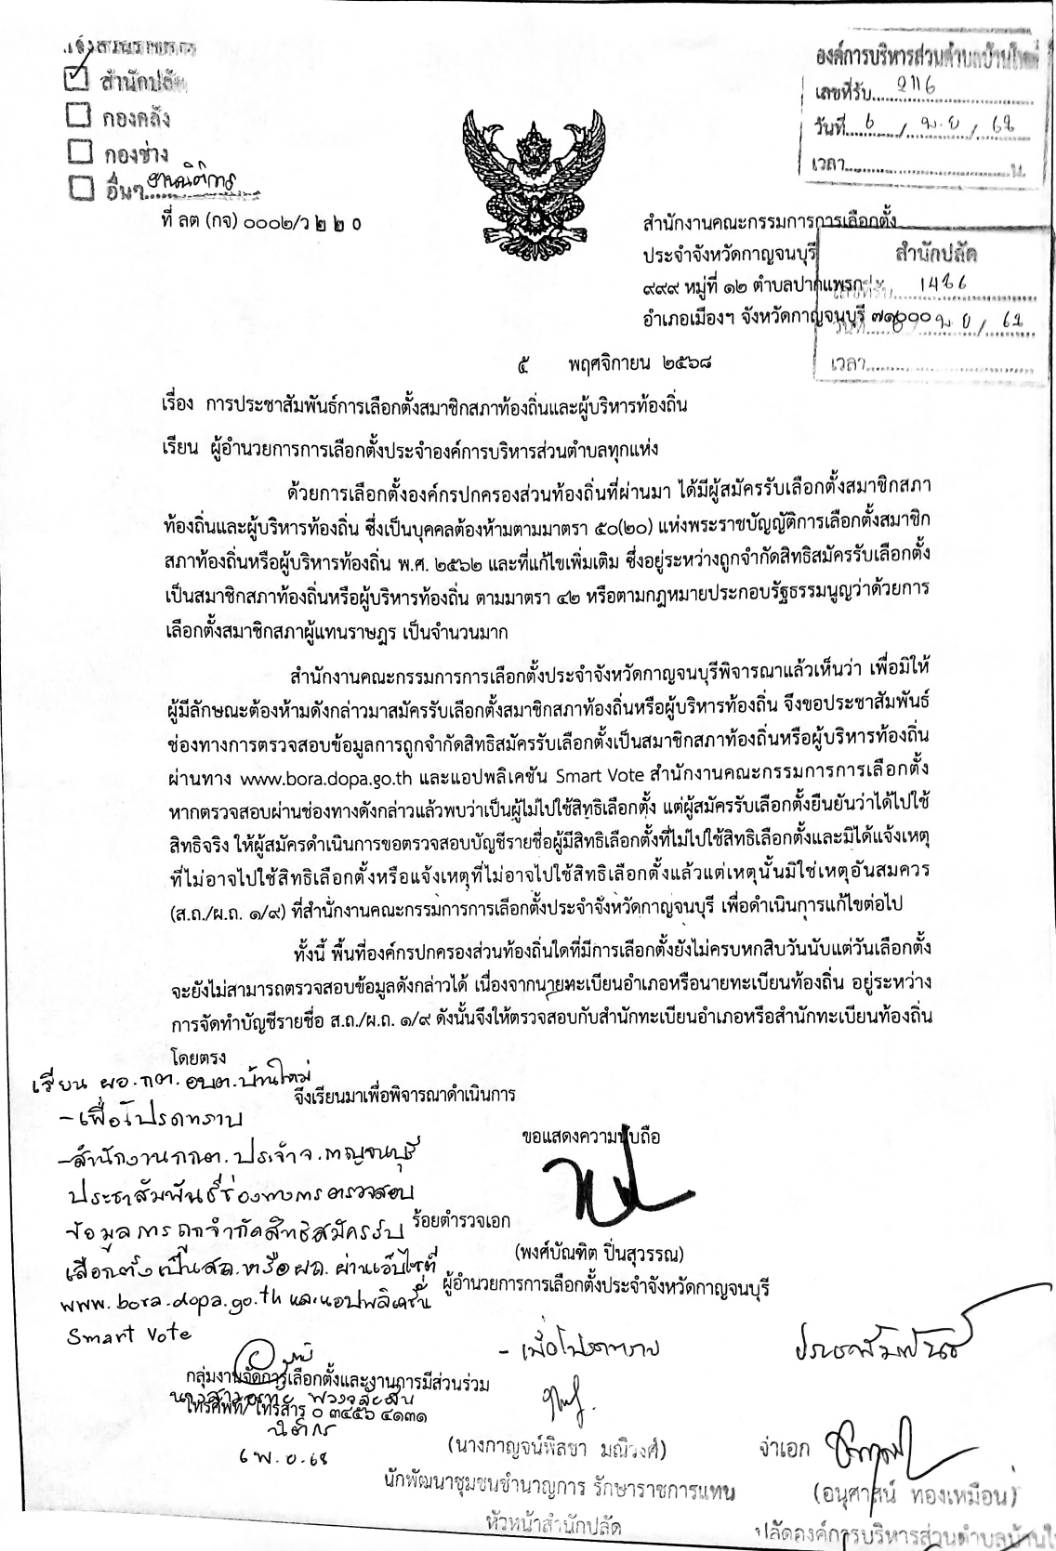 สำนักปลัด
กองคลัง
กองช่าง
อื่นๆ....งานนิติการ
องค์การบริหารส่วนตำบลบ้านใหม่
เลขที่รับ....2116
วันที่...6.../...พ.ย.../...68
เวลา.......................น.
ที่ ลต (กจ) ๐๐๐๒/ว ๒ ๒ ๐
สำนักงานคณะกรรมการการเลือกตั้ง
ประจำจังหวัดกาญจนบุรี
๙๙๙ หมู่ที่ ๑๒ ตำบลปากแพรก
อำเภอเมืองฯ จังหวัดกาญจนบุรี ๗๑๐๐๐
สำนักปลัด
เวลา
๕ พฤศจิกายน ๒๕๖๘
เรื่อง การประชาสัมพันธ์การเลือกตั้งสมาชิกสภาท้องถิ่นและผู้บริหารท้องถิ่น
เรียน ผู้อำนวยการการเลือกตั้งประจำองค์การบริหารส่วนตำบลทุกแห่ง
ด้วยการเลือกตั้งองค์กรปกครองส่วนท้องถิ่นที่ผ่านมา ได้มีผู้สมัครรับเลือกตั้งสมาชิกสภา
ท้องถิ่นและผู้บริหารท้องถิ่น ซึ่งเป็นบุคคลต้องห้ามตามมาตรา ๕๐(๒๐) แห่งพระราชบัญญัติการเลือกตั้งสมาชิก
สภาท้องถิ่นหรือผู้บริหารท้องถิ่น พ.ศ. ๒๕๖๒ และที่แก้ไขเพิ่มเติม ซึ่งอยู่ระหว่างถูกจำกัดสิทธิสมัครรับเลือกตั้ง
เป็นสมาชิกสภาท้องถิ่นหรือผู้บริหารท้องถิ่น ตามมาตรา ๔๒ หรือตามกฎหมายประกอบรัฐธรรมนูญว่าด้วยการ
เลือกตั้งสมาชิกสภาผู้แทนราษฎร เป็นจำนวนมาก
สำนักงานคณะกรรมการการเลือกตั้งประจำจังหวัดกาญจนบุรีพิจารณาแล้วเห็นว่า เพื่อมิให้
ผู้มีลักษณะต้องห้ามดังกล่าวมาสมัครรับเลือกตั้งสมาชิกสภาท้องถิ่นหรือผู้บริหารท้องถิ่น จึงขอประชาสัมพันธ์
ช่องทางการตรวจสอบข้อมูลการถูกจำกัดสิทธิสมัครรับเลือกตั้งเป็นสมาชิกสภาท้องถิ่นหรือผู้บริหารท้องถิ่น
ผ่านทาง www.bora.dopa.go.th และแอปพลิเคชัน Smart Vote สำนักงานคณะกรรมการการเลือกตั้ง
หากตรวจสอบผ่านช่องทางดังกล่าวแล้วพบว่าเป็นผู้ไม่ไปใช้สิทธิเลือกตั้ง แต่ผู้สมัครรับเลือกตั้งยืนยันว่าได้ไปใช้
สิทธิจริง ให้ผู้สมัครดำเนินการขอตรวจสอบบัญชีรายชื่อผู้มีสิทธิเลือกตั้งที่ไม่ไปใช้สิทธิเลือกตั้งและมิได้แจ้งเหตุ
ที่ไม่อาจไปใช้สิทธิเลือกตั้งหรือแจ้งเหตุที่ไม่อาจไปใช้สิทธิเลือกตั้งแล้วแต่เหตุนั้นมิใช่เหตุอันสมควร
(ส.ถ./ผ.ถ. ๑/๙) ที่สำนักงานคณะกรรมการการเลือกตั้งประจำจังหวัดกาญจนบุรี เพื่อดำเนินการแก้ไขต่อไป
ทั้งนี้ พื้นที่องค์กรปกครองส่วนท้องถิ่นใดที่มีการเลือกตั้งยังไม่ครบหกสิบวันนับแต่วันเลือกตั้ง
จะยังไม่สามารถตรวจสอบข้อมูลดังกล่าวได้ เนื่องจากนายทะเบียนอำเภอหรือนายทะเบียนท้องถิ่น อยู่ระหว่าง
การจัดทำบัญชีรายชื่อ ส.ถ./ผ.ถ. ๑/๙ ดังนั้นจึงให้ตรวจสอบกับสำนักทะเบียนอำเภอหรือสำนักทะเบียนท้องถิ่น
โดยตรง
จึงเรียนมาเพื่อพิจารณาดำเนินการ
ขอแสดงความนับถือ
ร้อยตำรวจเอก
(พงศ์บัณฑิต ปิ่นสุวรรณ)
ผู้อำนวยการการเลือกตั้งประจำจังหวัดกาญจนบุรี
เรียน ผอ.กต. อบต.บ้านใหม่
- เพื่อโปรดทราบ
- สำนักงาน กกต. ประจำ จ.กาญจนบุรี
ประชาสัมพันธ์ช่องทางการตรวจสอบ
ข้อมูลการถูกจำกัดสิทธิสมัครรับ
เลือกตั้งเป็น สถ. หรือ ผถ. ผ่านเว็บไซต์
www.bora.dopa.go.th และแอปพลิเคชั่น
Smart Vote
กลุ่มงานจัดการเลือกตั้งและงานการมีส่วนร่วม
โทรศัพท์/โทรสาร ๐ ๓๔๕๖ ๔๑๓๑
นิติกร
6 พ.ย. 68
- เพื่อโปรดทราบ
(นางกาญจน์พิสชา มณีวงศ์)
นักพัฒนาชุมชนชำนาญการ รักษาราชการแทน
หัวหน้าสำนักปลัด
ประชาสัมพันธ์
จ่าเอก
(อนุศาสน์ ทองเหมือน)
ปลัดองค์การบริหารส่วนตำบลบ้านใ